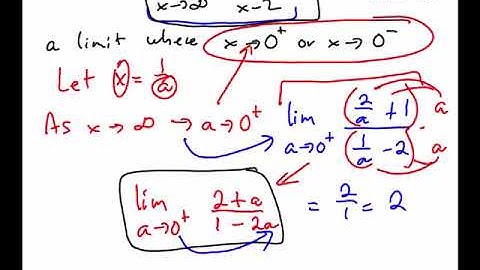 x→∞ x-2
a limit where x→0⁺ or x→0⁻
Let x = 1/a
As x→∞ → a→0⁺
lim a→0⁺ (2/a + 1) a / (1/a - 2) · a
lim a→0⁺ 2+a / 1-2a = 2/1 = 2